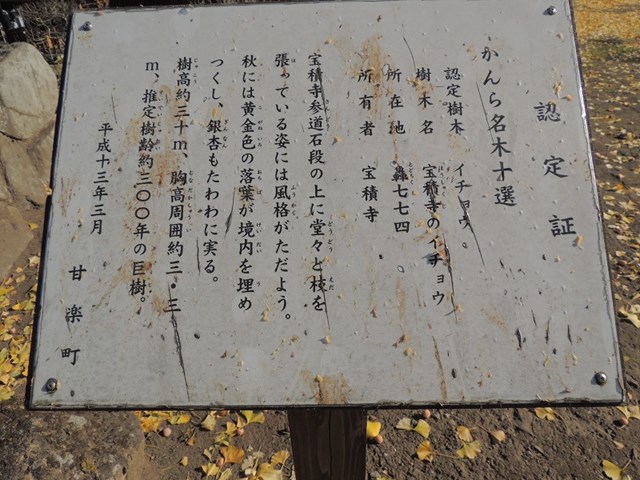 認定証
かんら名木十選
認定樹木 イチョウ
樹木名 宝積寺のイチョウ
所在地 轟七七四
所有者 宝積寺
宝積寺参道石段の上に堂々と枝を
張っている姿には風格がただよう。
秋には黄金色の落葉が境内を埋め
つくし、銀杏もたわわに実る。
樹高約三十m、胸高周囲約三・三
m、推定樹齢約三〇〇年の巨樹。
平成十三年三月
甘楽町